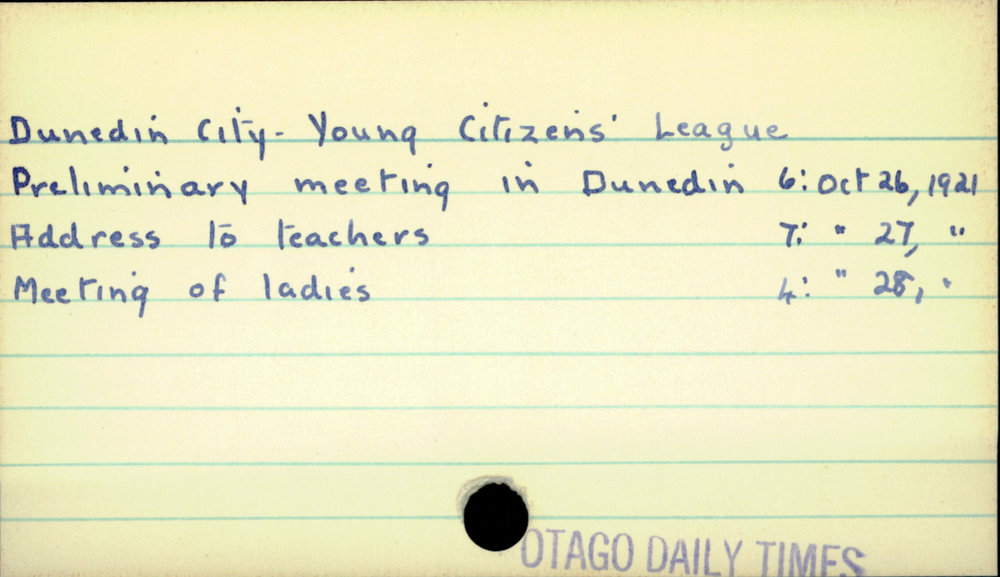 Dunedin City - Young Citizens' League
Preliminary meeting in Dunedin 6: Oct 26, 1921
Address to teachers 7: " 27, "
Meeting of ladies 4: " 28, "
OTAGO DAILY TIMES